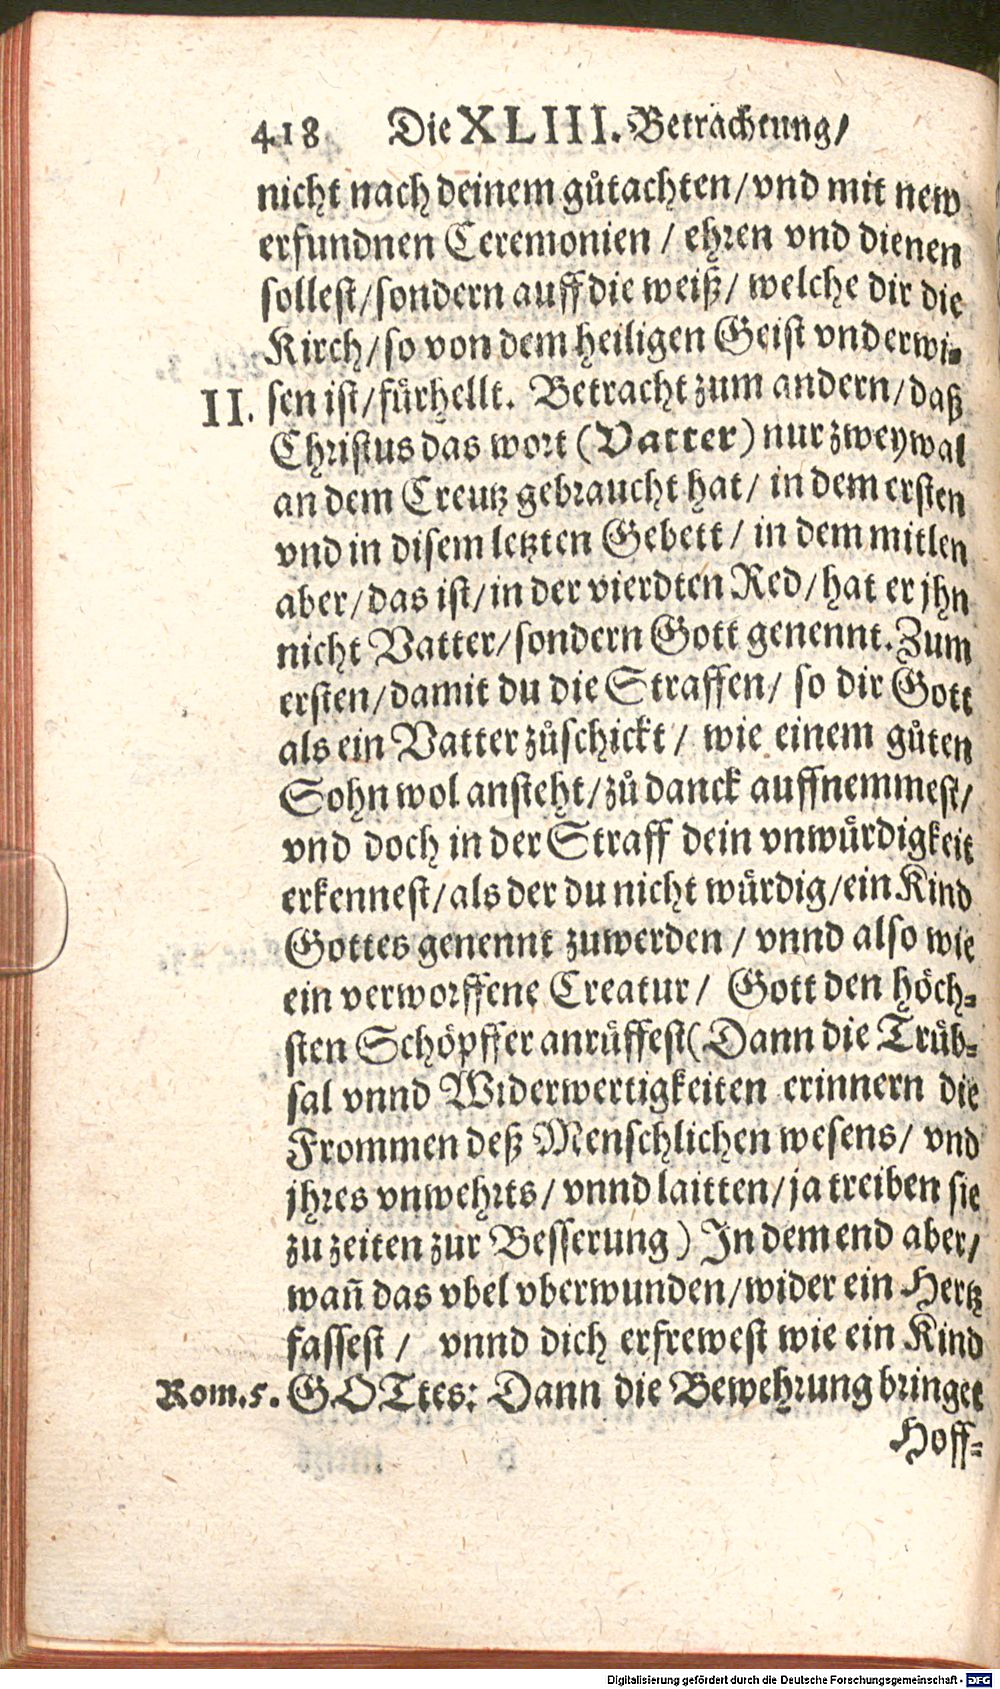 418 Die XLIII. Betrachtung/
nicht nach deinem gůtachten/vnd mit new
erfundnen Ceremonien / ehren vnd dienen
sollest/sondern auff die weiß/ welche dir die
Kirch/so von dem heiligen Geist vnderwi-
II. sen ist/fürhellt. Betracht zum andern/daß
Christus das wort (Vatter) nur zweymal
an dem Creutz gebraucht hat/ in dem ersten
vnd in disem letzten Gebett / in dem mitlen
aber/das ist/in der vierdten Red/hat er jhn
nicht Vatter/sondern Gott genennt. Zum
ersten/damit du die Straffen/ so dir Gott
als ein Vatter zůschickt / wie einem gůten
Sohn wol ansteht/zů danck auffnemmest/
vnd doch in der Straff dein vnwürdigkeit
erkennest/als der du nicht würdig/ein Kind
Gottes genennt zuwerden / vnnd also wie
ein verworffene Creatur/ Gott den höch-
sten Schöpffer anrüffest(Dann die Trüb-
sal vnnd Widerwertigkeiten erinnern die
Frommen deß Menschlichen wesens/ vnd
jhres vnwehrts/ vnnd laitten/ja treiben sie
zu zeiten zur Besserung) In dem end aber/
wañ das vbel vberwunden/wider ein Hertz
fassest / vnnd dich erfrewest wie ein Kind
Rom.5. GOTtes: Dann die Bewehrung bringet
Hoff-
Digitalisierung gefördert durch die Deutsche Forschungsgemeinschaft - DFG